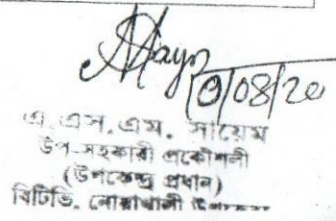 10/08/20
এ.এস.এম. সায়েম
উপ-সহকারী প্রকৌশলী
(উপকেন্দ্র প্রধান)
বিটিভি, নোয়াখালী